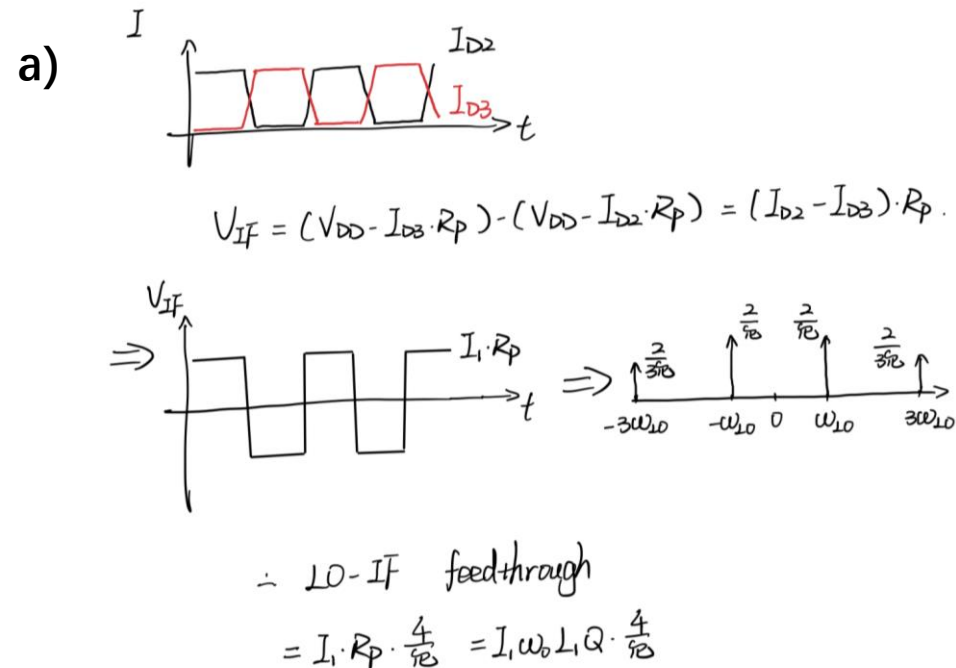 a)
I
I_D2
I_D3
t
V_IF = (V_DD - I_D3·R_p) - (V_DD - I_D2·R_p) = (I_D2 - I_D3)·R_p.
V_IF
⇒
I_1·R_p
t
⇒
2/3π 2/π 2/π 2/3π
-3ω_LO -ω_LO 0 ω_LO 3ω_LO
∴ LO-IF feedthrough
= I_1·R_p·4/π = I_1ω_0L_1Q·4/π